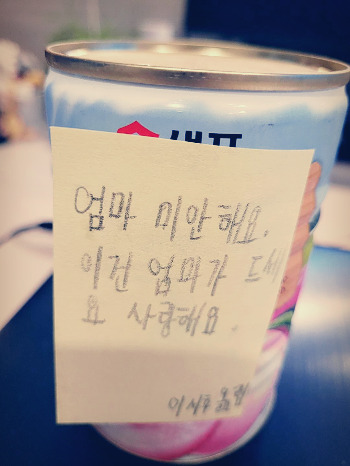 샘표
엄마 미안해요.
이건 엄마가 드세
요 사랑해요.
이시후 올림